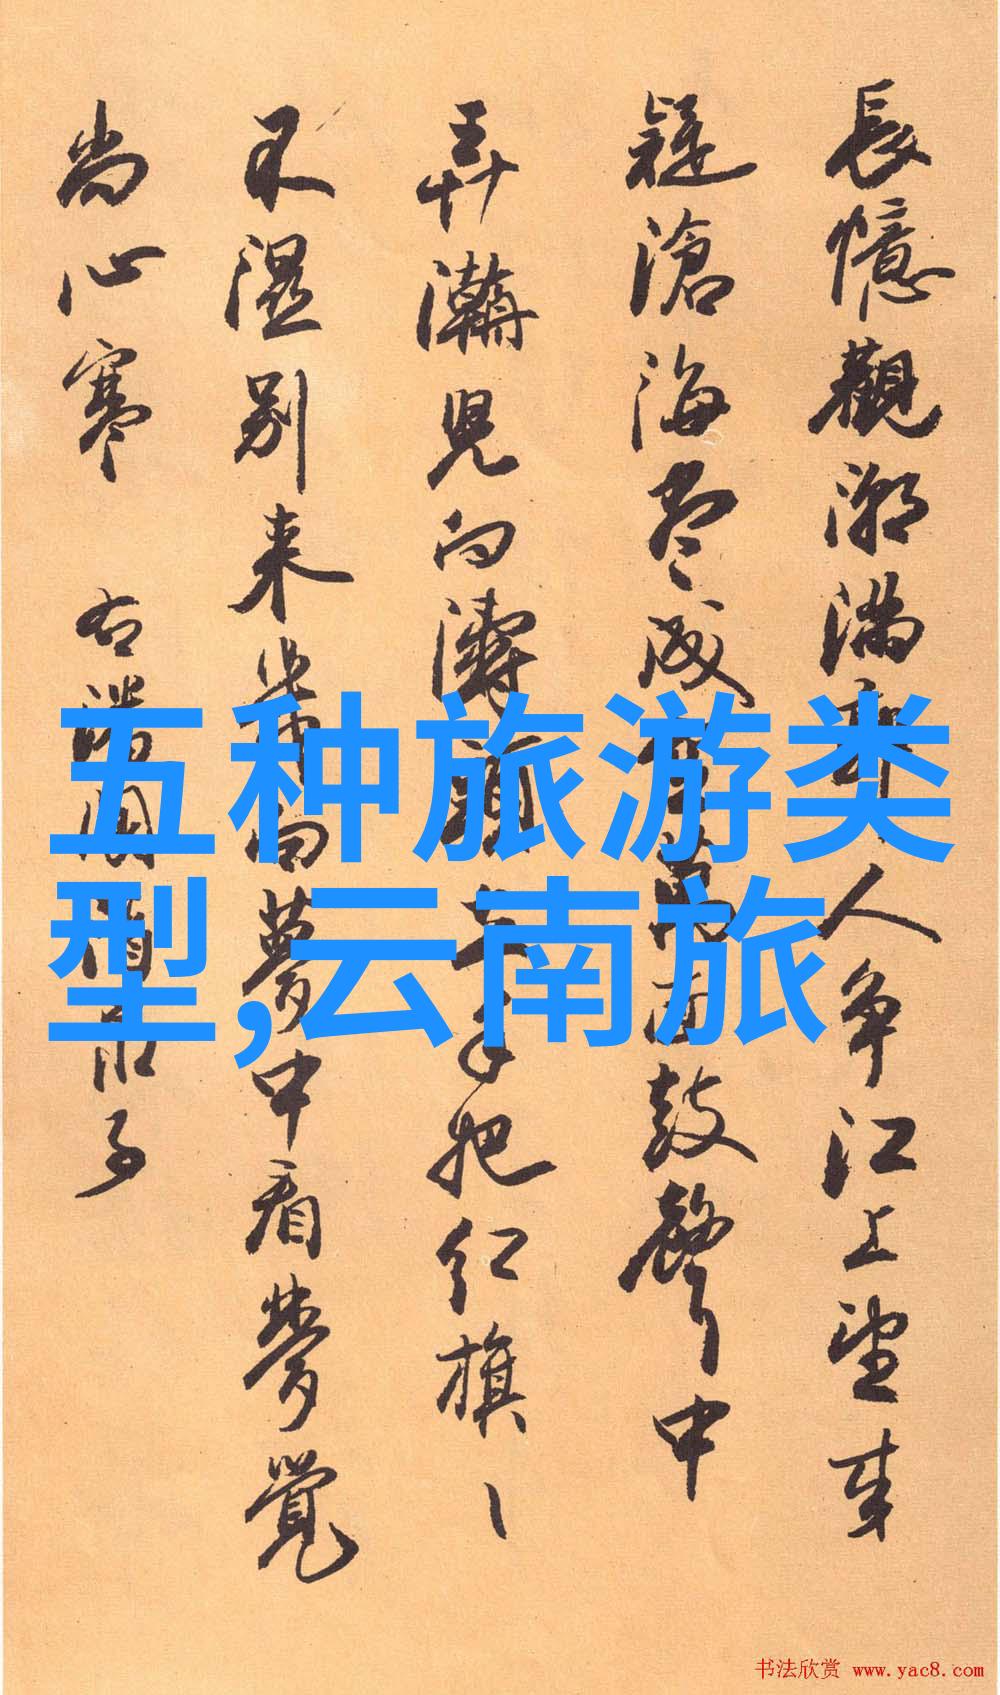 長憶觀潮滿郭人爭江上望来
疑滄海盡成空萬面鼓聲中
弄潮兒向濤頭立手把红旗ヽヽ
不湿别来幾向夢中看夢覺
尚心寒 右潘閬酒泉子
五种旅游类
型,云南旅
书法欣赏 www.yac8.com